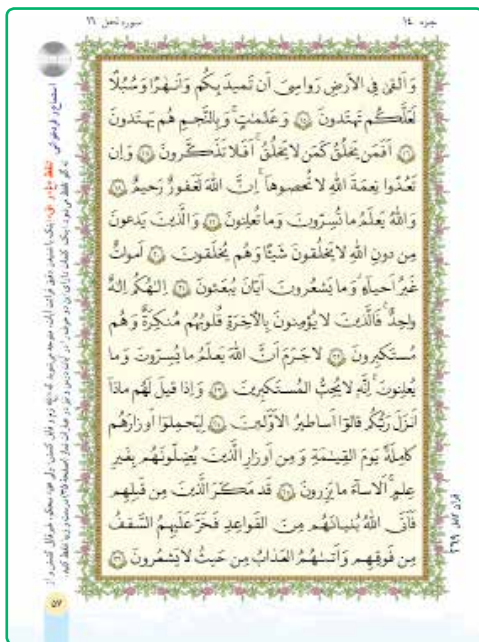 جزء ١٤
سوره نحل ١٦
وَاَلقىٰ فِي الاَرضِ رَواسِيَ اَن تَميدَ بِكُم وَاَنهٰرًا وَسُبُلًا
لَعَلَّكُم تَهتَدونَ ١٥ وَعَلٰمٰتٍ ۚ وَبِالنَّجمِ هُم يَهتَدونَ
١٦ اَفَمَن يَخلُقُ كَمَن لا يَخلُقُ ۗ اَفَلا تَذَكَّرونَ ١٧ وَاِن
تَعُدّوا نِعمَةَ اللهِ لا تُحصوها ۗ اِنَّ اللهَ لَغَفورٌ رَحيمٌ ١٨
وَاللهُ يَعلَمُ ما تُسِرّونَ وَما تُعلِنونَ ١٩ وَالَّذينَ يَدعونَ
مِن دونِ اللهِ لا يَخلُقونَ شَيـًٔا وَهُم يُخلَقونَ ٢٠ اَمواتٌ
غَيرُ اَحياءٍ ۖ وَما يَشعُرونَ اَيّانَ يُبعَثونَ ٢١ اِلٰهُكُم اِلٰهٌ
واحِدٌ ۚ فَالَّذينَ لا يُؤمِنونَ بِالآخِرَةِ قُلوبُهُم مُنكِرَةٌ وَهُم
مُستَكبِرونَ ٢٢ لا جَرَمَ اَنَّ اللهَ يَعلَمُ ما يُسِرّونَ وَما
يُعلِنونَ ۚ اِنَّهُ لا يُحِبُّ المُستَكبِرينَ ٢٣ وَاِذا قيلَ لَهُم ماذا
اَنزَلَ رَبُّكُم ۙ قالوا اَساطيرُ الاَوَّلينَ ٢٤ لِيَحمِلوا اَوزارَهُم
كامِلَةً يَومَ القِيٰمَةِ ۙ وَمِن اَوزارِ الَّذينَ يُضِلّونَهُم بِغَيرِ
عِلمٍ ۗ اَلا ساءَ ما يَزِرونَ ٢٥ قَد مَكَرَ الَّذينَ مِن قَبلِهِم
فَاَتَى اللهُ بُنيانَهُم مِنَ القَواعِدِ فَخَرَّ عَلَيهِمُ السَّقفُ
مِن فَوقِهِم وَاَتىٰهُمُ العَذابُ مِن حَيثُ لا يَشعُرونَ ٢٦
استماع و فردخوانی
تلفظ «غ» و «ق»:
قرآن کامل ٢٦٩
٥٧